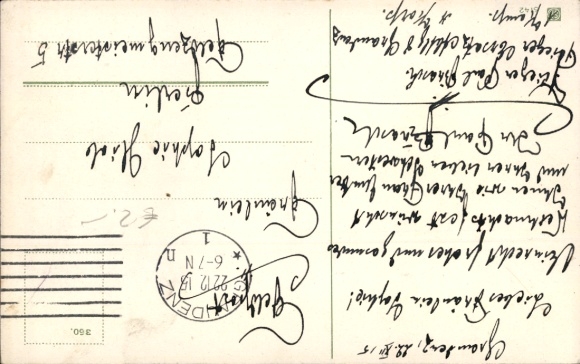 Graudenz, 22.XII.15
Liebes Fräulein Sophie!
Ein recht frohes und gesundes
Weihnachtsfest wünscht
Ihnen wie Ihrer Frau Mutter
und Ihren lieben Schwestern
Ihr Paul
Flieger Paul
Flieger Ersatz Abtlg 8 Graudenz
Komp.
Korp.
Feldpost
GRAUDENZ
22.12.15
6-7 N
1 n
Fräulein
Sophie
Berlin
Feldzeugmeisterstr 5
€ 2.-
360.